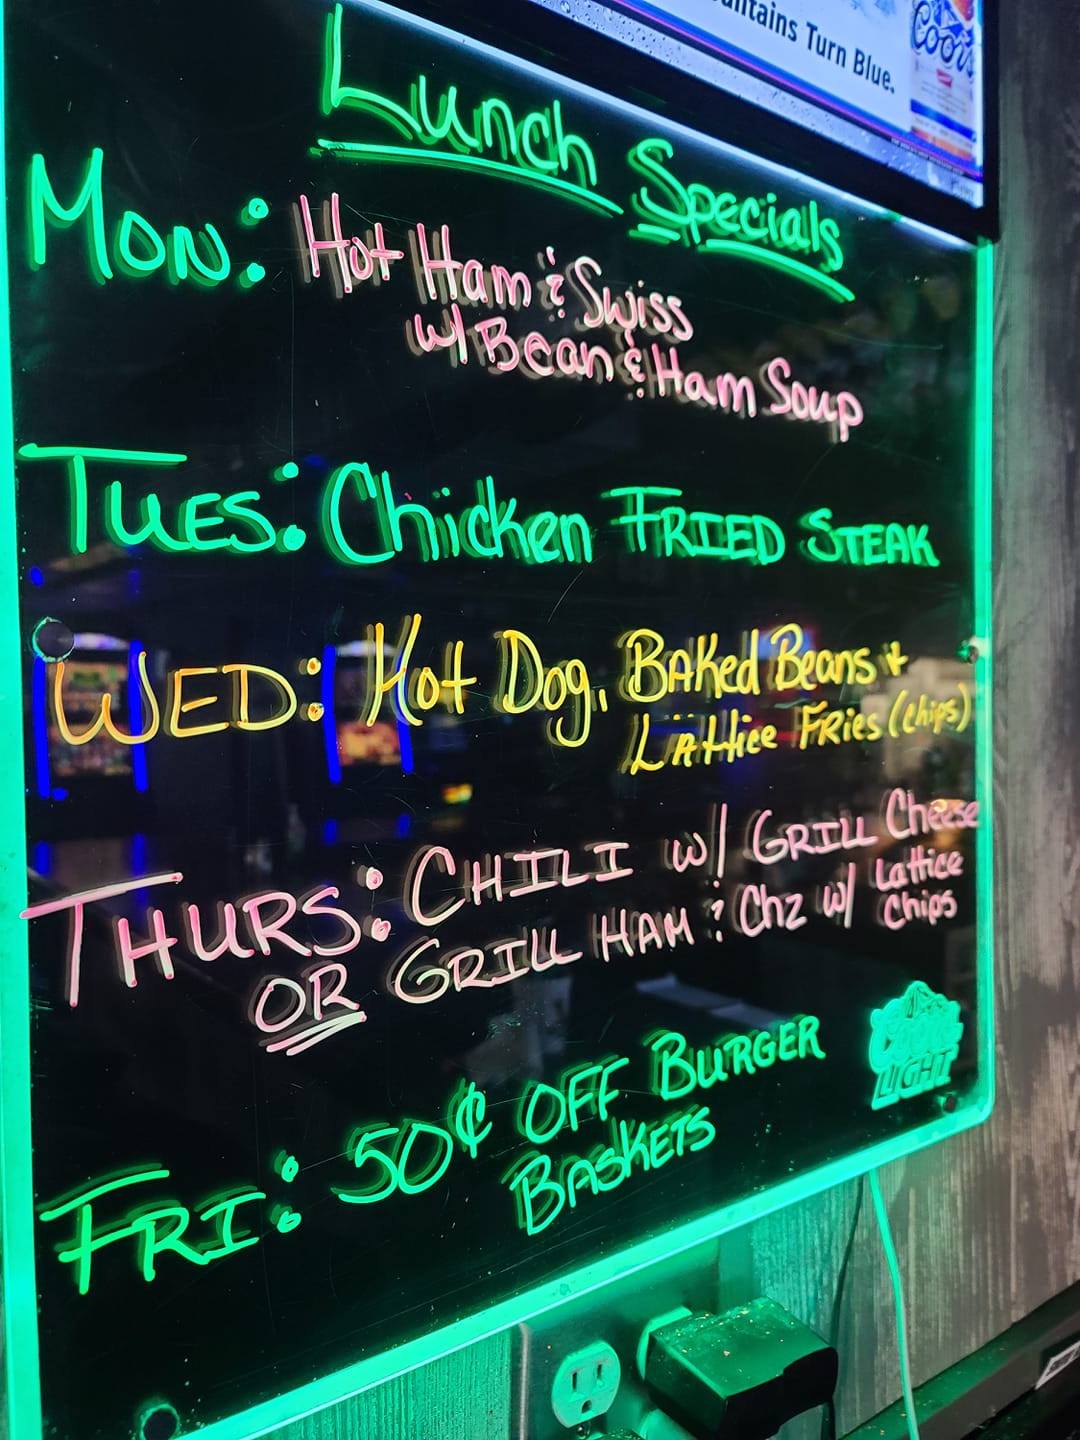 untains Turn Blue.
Coors
Lunch Specials
Mon: Hot Ham & Swiss
w/ Bean & Ham Soup
TUES: Chicken FRIED STEAK
WED: Hot Dog, BAKed Beans +
LAttice FRies (chips)
THURS: CHILI w/ GRILL Cheese
OR GRILL HAM & Chz w/ Lattice
chips
FRI: 50¢ OFF BURGER
BASKETS
Coors
LIGHT